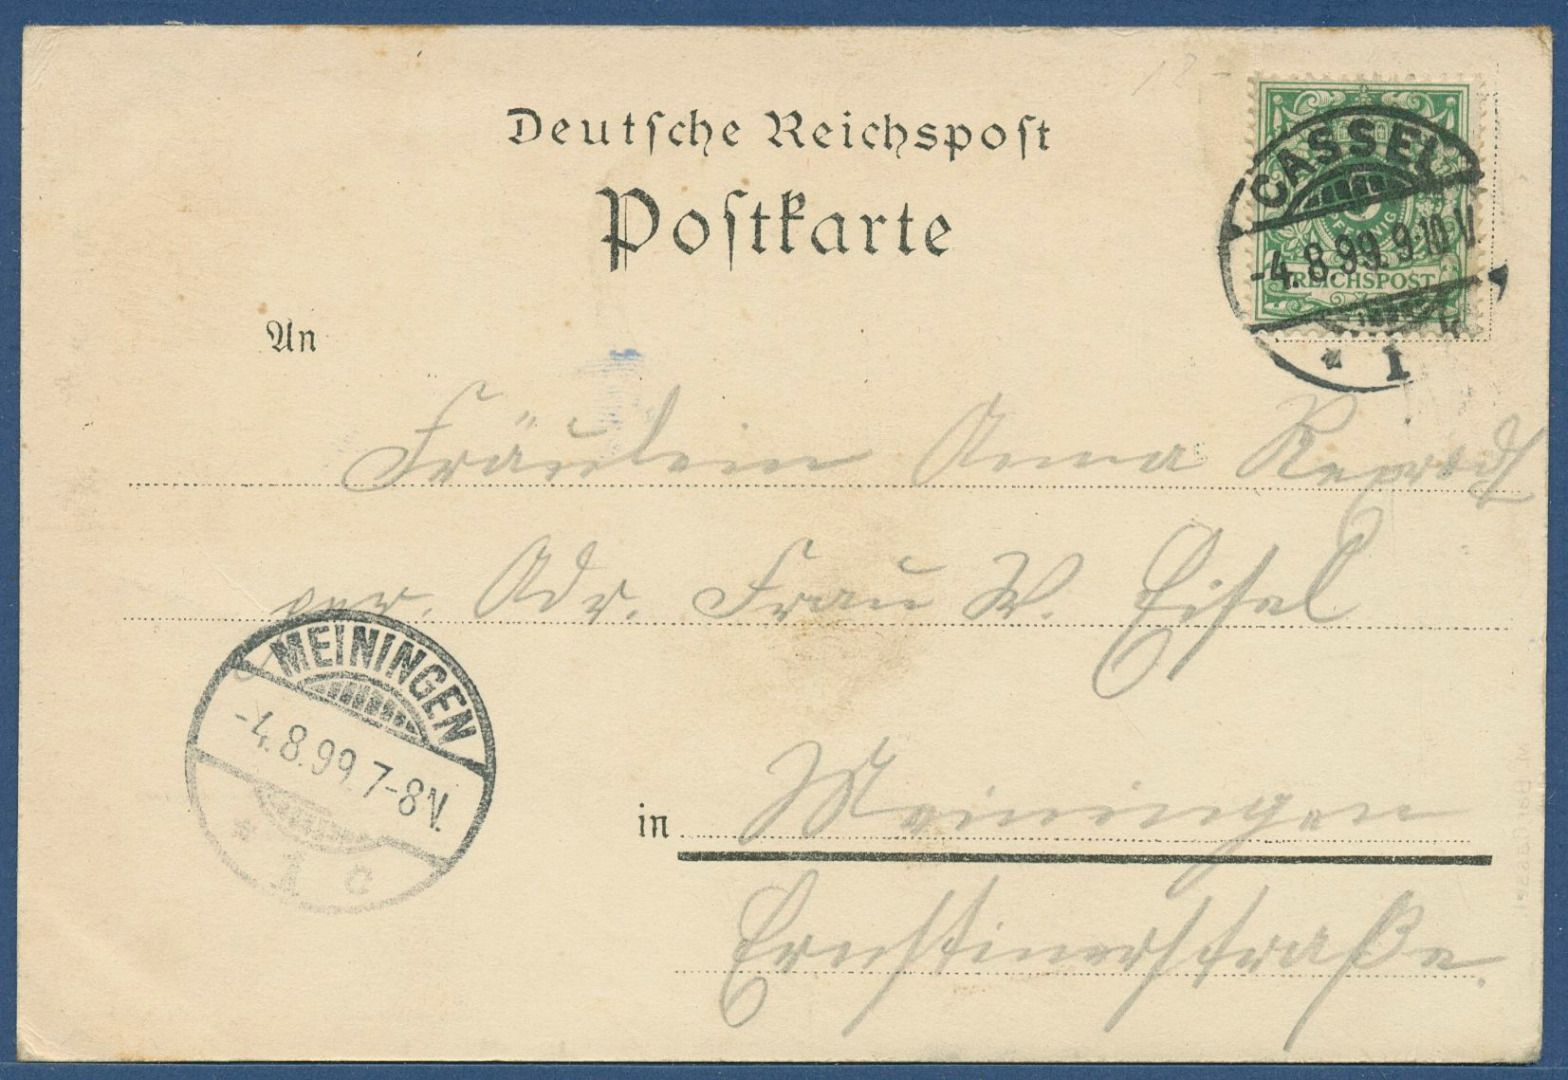 Deutsche Reichspost
Postkarte
CASSEL
-4.8.99.9-10.V
REICHSPOST
* 1
An
Fräulein Anna
per. Adr. Frau W. Eisel
MEININGEN
-4.8.99 7-8V.
* 1 c
in Meiningen
Ernstinerstraße.